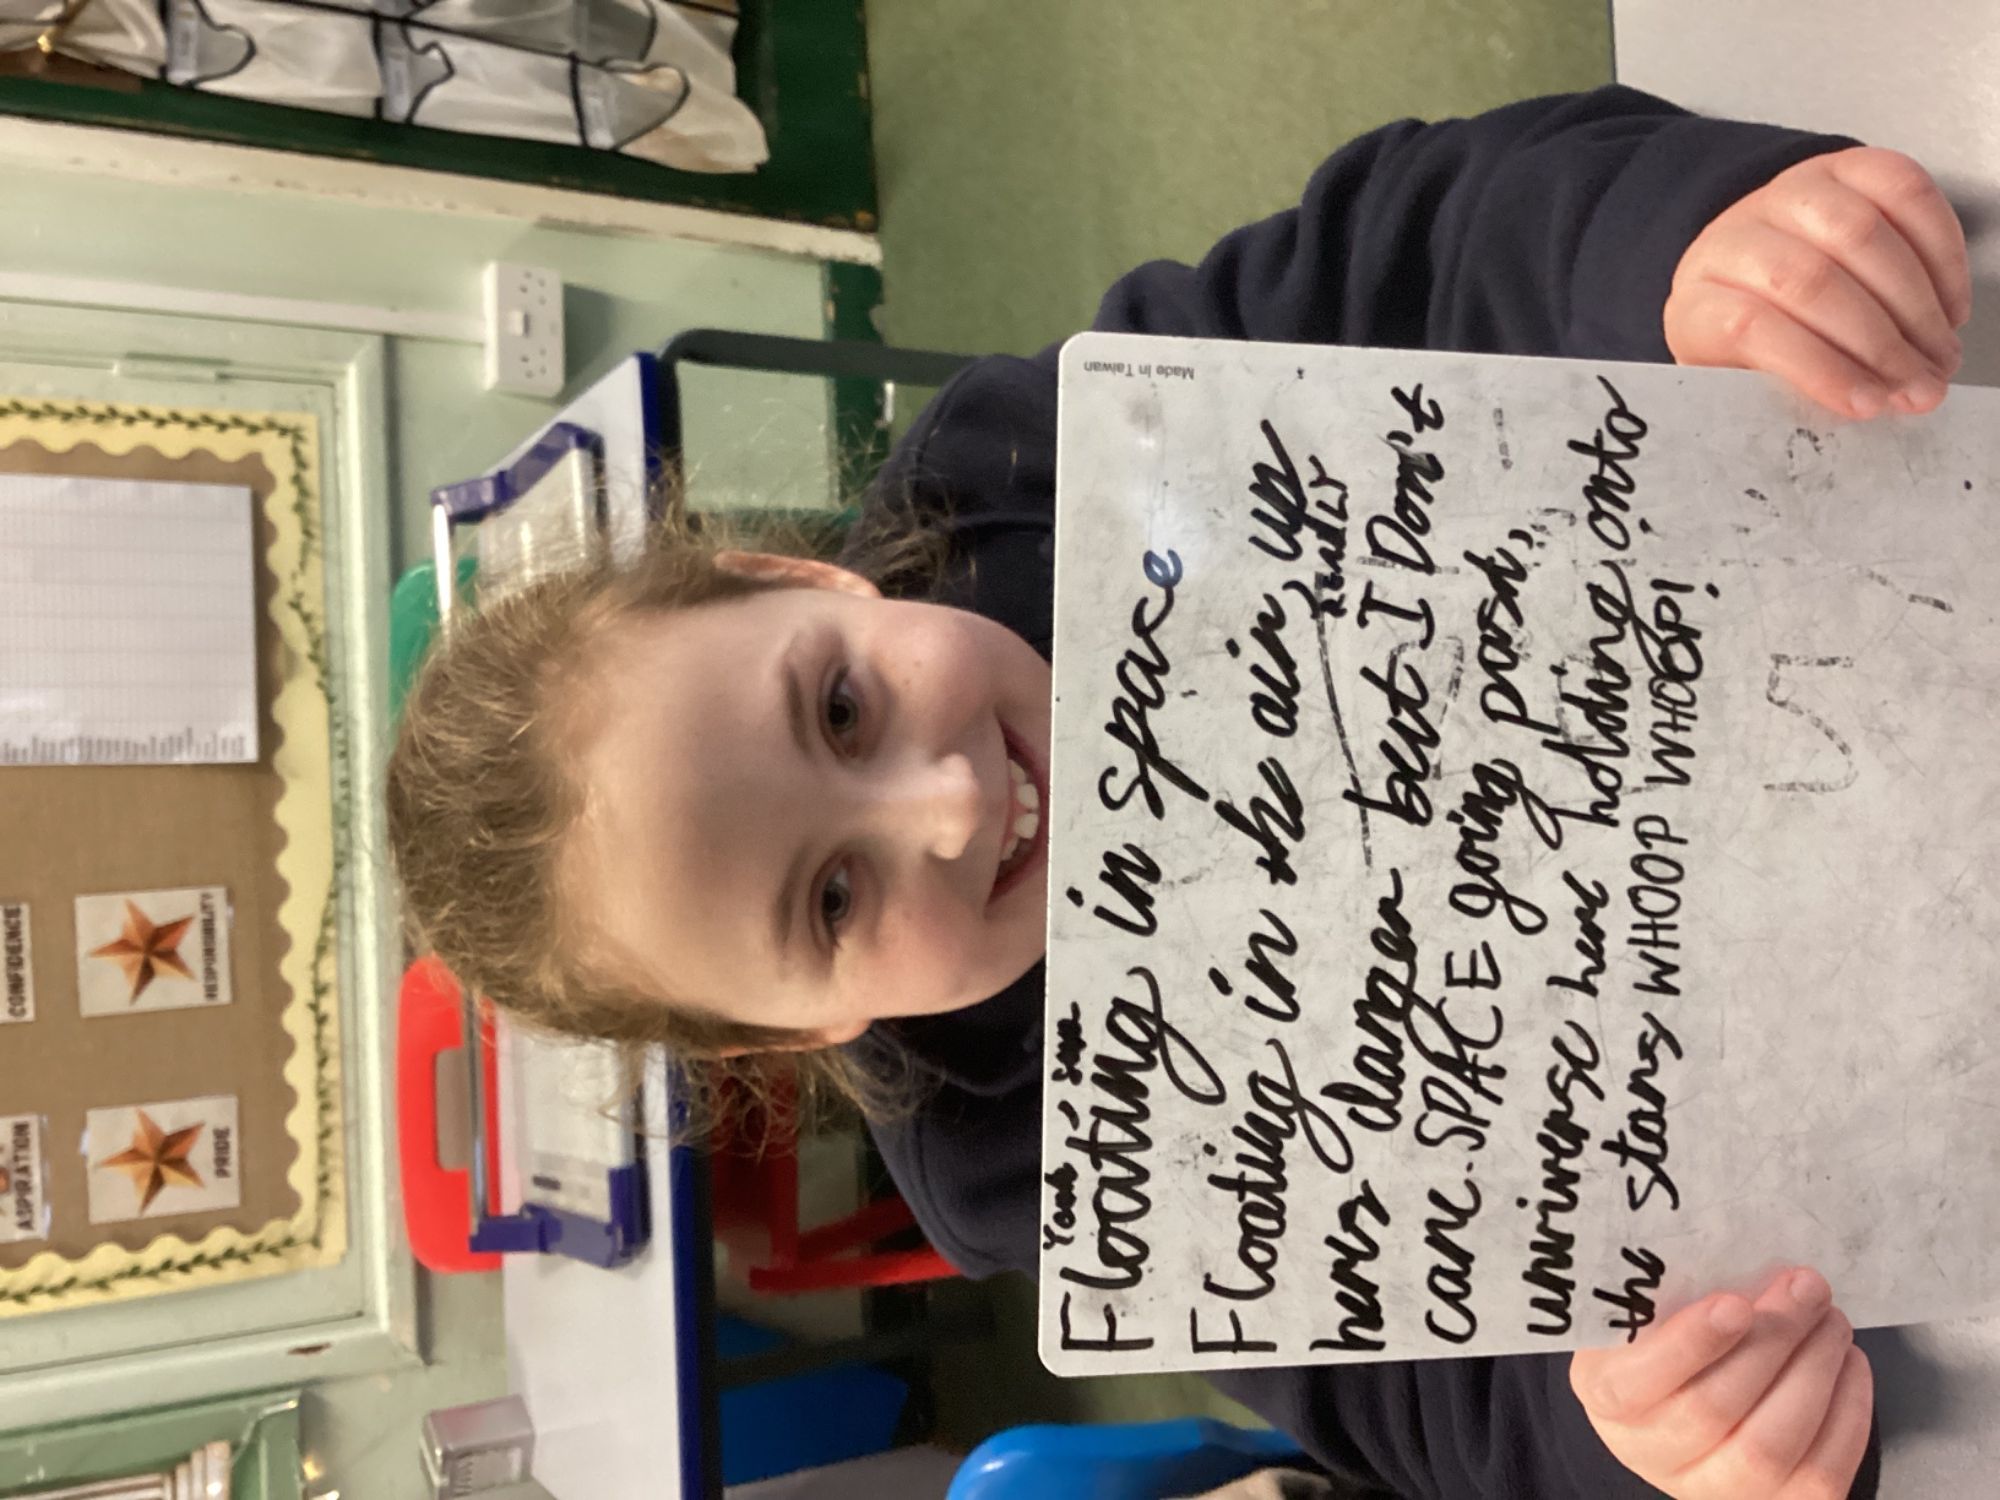 CONFIDENCE
ASPIRATION
PRIDE
RESPONSIBILITY
Made In Taiwan
Yeah
Floating in space
Floating in the air, up
REALLY
heres danger but I Don't
care. SPACE going past,
universe here holding onto
the stars WHOOP WHOOP!
5